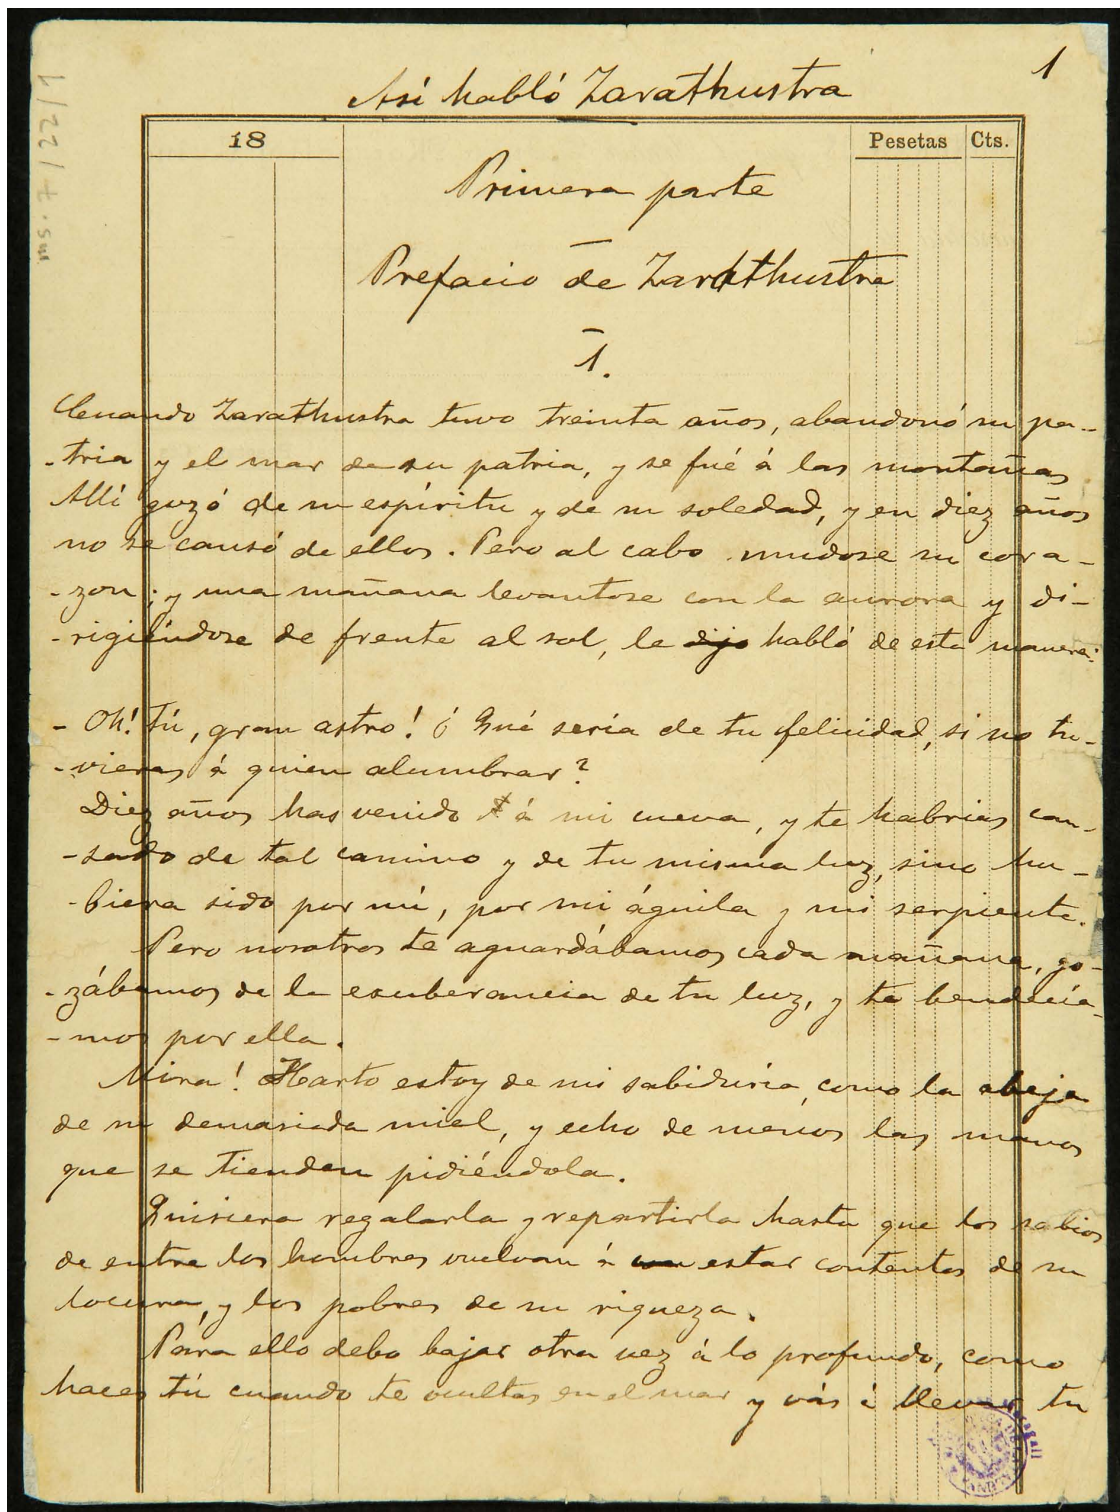 1
Así habló Zarathustra
18
Pesetas Cts.
Primera parte
Prefacio de Zarathustra
1.
Cuando Zarathustra tuvo treinta años, abandonó su pa-
-tria y el mar de su patria, y se fué á las montañas
Allí gozó de su espíritu y de su soledad, y en diez años
no se cansó de ellos. Pero al cabo mudose su cora-
-zon; y una mañana levantose con la aurora y di-
-rigiéndose de frente al sol, le dijo habló de esta manera:
- Oh! Tú, gran astro! ¿Qué sería de tu felicidad, si no tu-
-vieras á quien alumbrar?
Diez años has venido á mi cueva, y te habrias can-
-sado de tal camino y de tu misma luz, sino hu-
-biera sido por mí, por mi águila y mi serpiente.
Pero nosotros te aguardábamos cada mañana, go-
-zábamos de la exuberancia de tu luz, y te bendecía-
-mos por ella.
Mira! Harto estoy de mi sabiduría, como la abeja
de su demasiada miel, y echo de menos las manos
que se tienden pidiéndola.
Quisiera regalarla y repartirla hasta que los sabios
de entre los hombres vuelvan á estar contentos de su
locura, y los pobres de su riqueza.
Para ello debo bajar otra vez á lo profundo, como
haces tú cuando te ocultas en el mar y vás á llevar tu
ms. 7/22/1